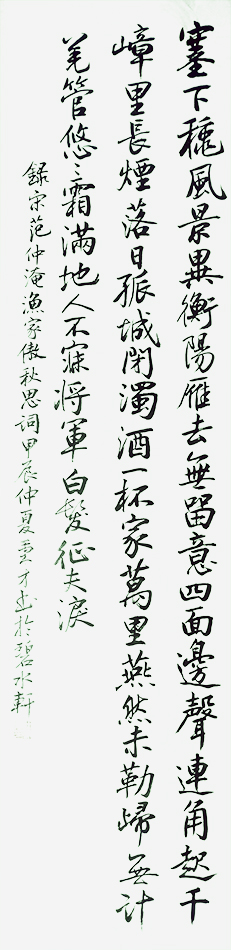 塞下穐風景異衡陽雁去無留意四面邊聲連角起千
嶂里長煙落日孤城閉濁酒一杯家萬里燕然未勒歸無計
羌管悠〻霜滿地人不寐將軍白髮征夫淚
錄宋范仲淹漁家傲秋思詞甲辰仲夏才書於碧水軒